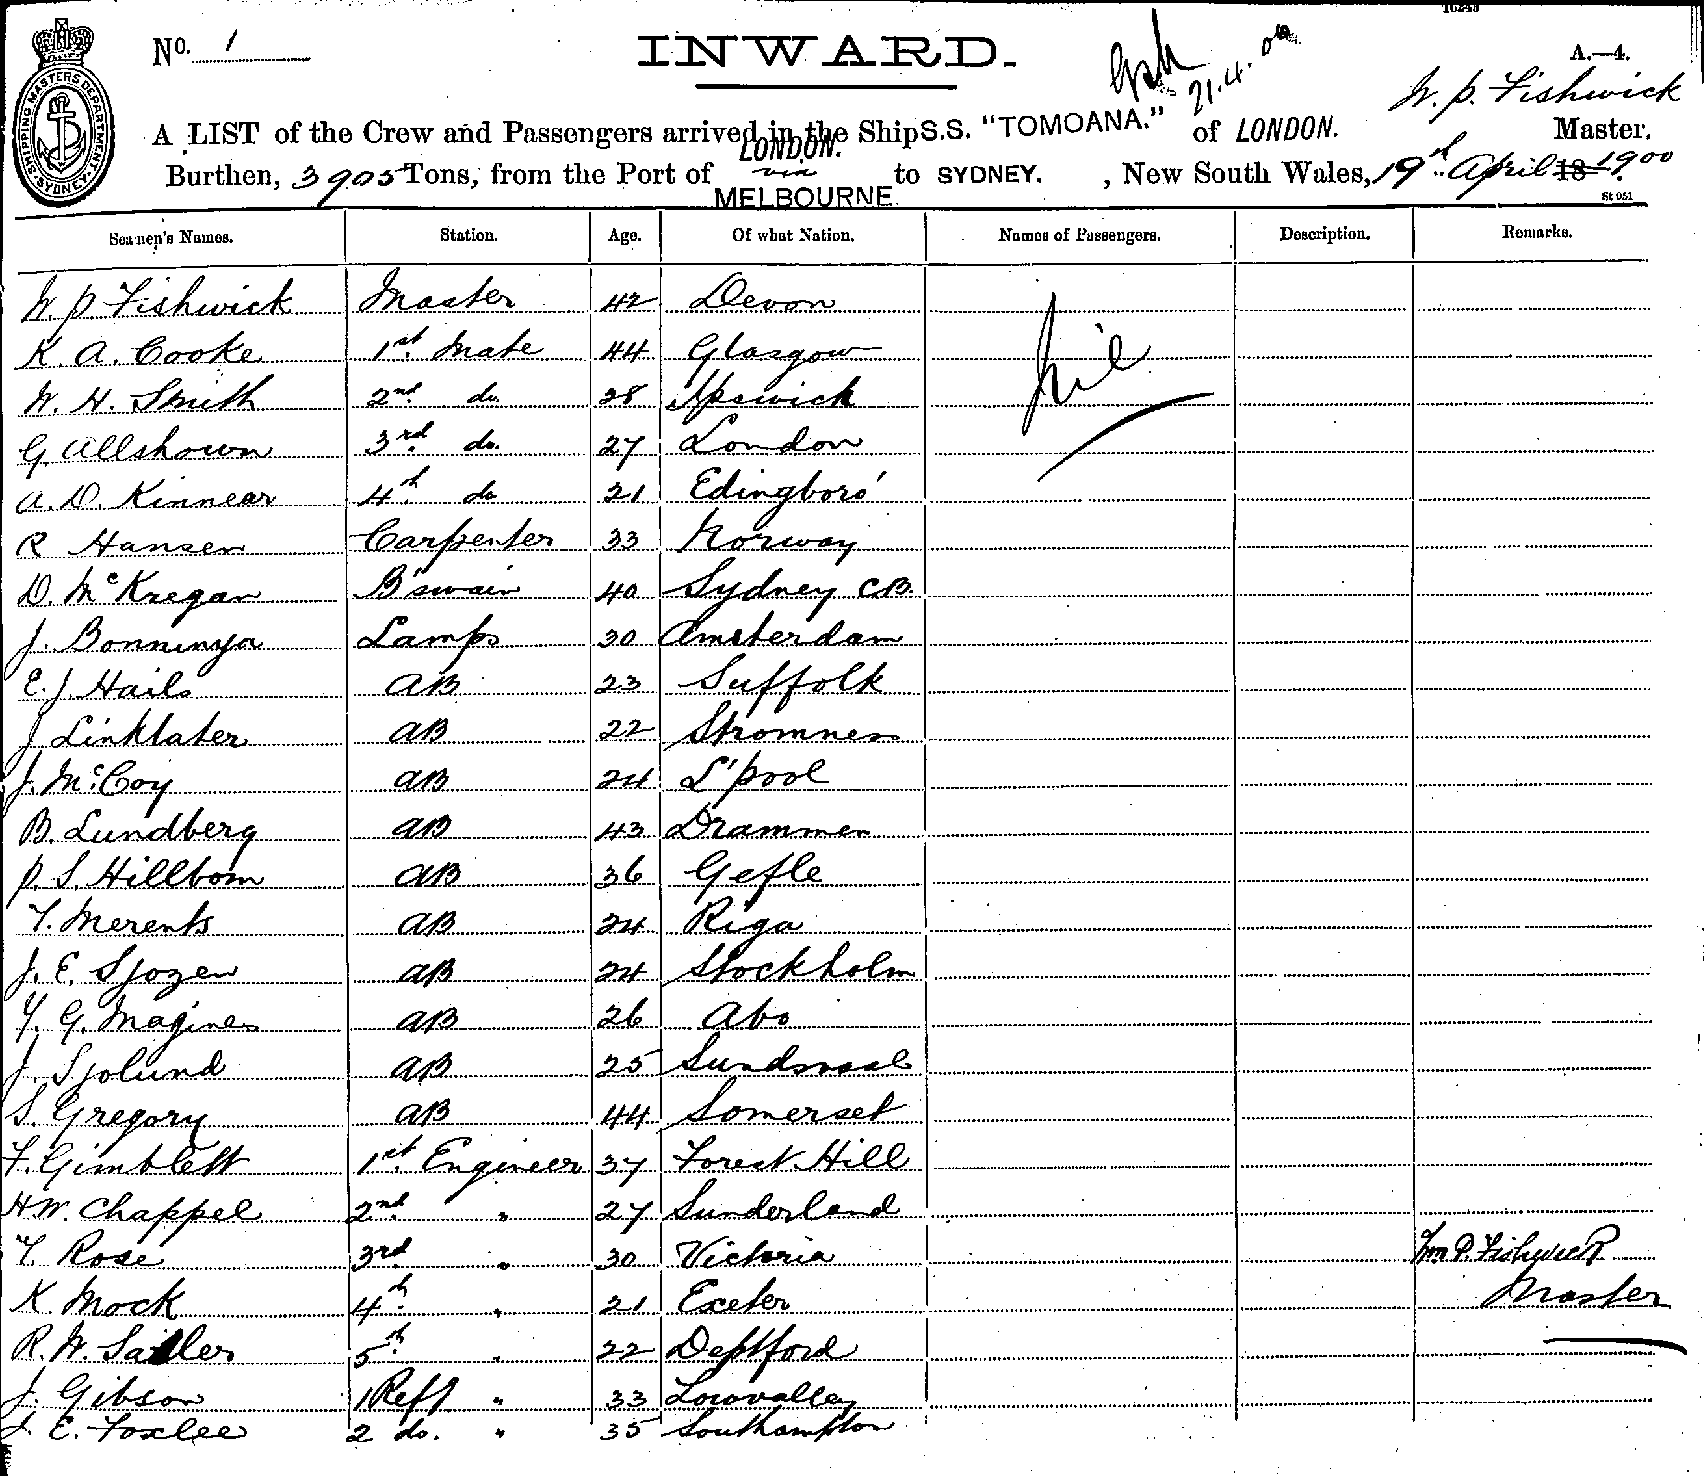 16243
No. 1
INWARD.
21.4.00
A.—4.
W. P. Fishwick
A LIST of the Crew and Passengers arrived in the Ship S.S. "TOMOANA." of LONDON. Master.
Burthen, 3905 Tons, from the Port of LONDON. via MELBOURNE to SYDNEY. , New South Wales, 19th April 18 1900
SHIPPING MASTERS DEPARTMENT SYDNEY
St 951
Seamen's Names. Station. Age. Of what Nation. Names of Passengers. Description. Remarks.
W. P Fishwick Master 42 Devon
K. A. Cooke 1st Mate 44 Glasgow
Nil
W. H. Smith 2nd do. 28 Ipswich
G. Allshown 3rd do. 27 London
A. D. Kinnear 4th do 21 Edingboro'
R Hansen Carpenter 33 Norway
D. McKregan B'swain 40 Sydney CB.
J. Bonninga Lamps 30 Amsterdam
E. J. Hails AB 23 Suffolk
J Linklater AB 22 Stromness
J. McCoy AB 24 L'pool
B. Lundberg AB 43 Drammen
P. S. Hillbom AB 36 Gefle
T. Merents AB 24 Riga
J. E. Sjozen AB 24 Stockholm
Y. G. Magines AB 26 Abo
J. Sjolund AB 25 Sundsvaal
S. Gregory AB 44 Somerset
F. Gimblett 1st Engineer 37 Forest Hill
H W. Chappel 2nd " 27 Sunderland
T. Rose 3rd " 30 Victoria Wm P. Fishwick
K Mock 4th " 21 Exeter Master
R. W. Sadler 5th " 22 Deptford
J. Gibson 1 Refg " 33 Lowvalley
J. E. Foxlee 2 do. " 35 Southampton